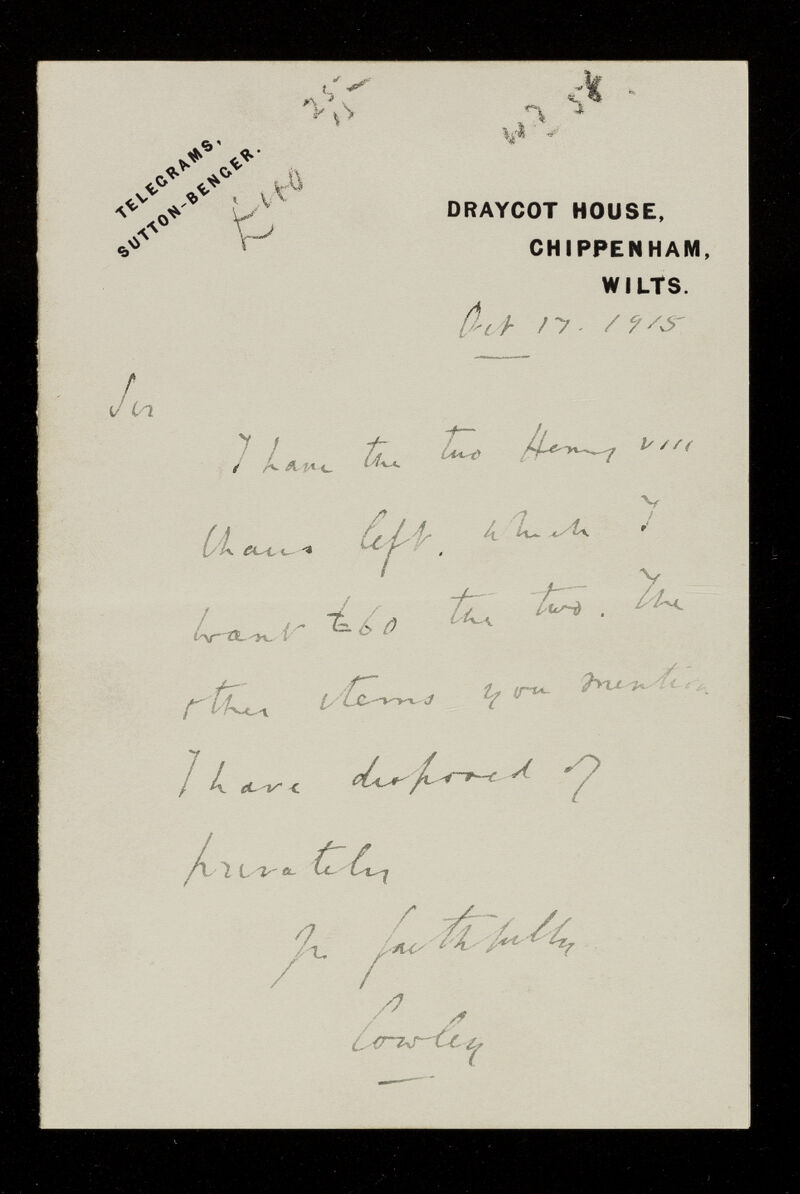 25
15
W.J. 58.
TELEGRAMS,
SUTTON-BENGER.
£40
DRAYCOT HOUSE,
CHIPPENHAM,
WILTS.
Oct 17. 1915
Sir
I have the two Henry VIII
Chairs left, which I
want £60 the two. The
other items you mention
I have disposed of
privately
yrs faithfully
Cowley